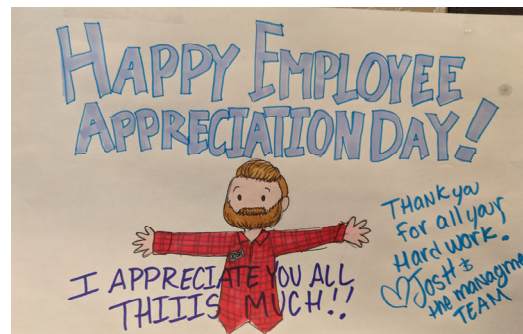 HAPPY EMPLOYEE
APPRECIATION DAY!
I APPRECIATE YOU ALL
THIIIS MUCH!!
THANK you
For all your
Hard work.
♡JOSH &
the managme
TEAM